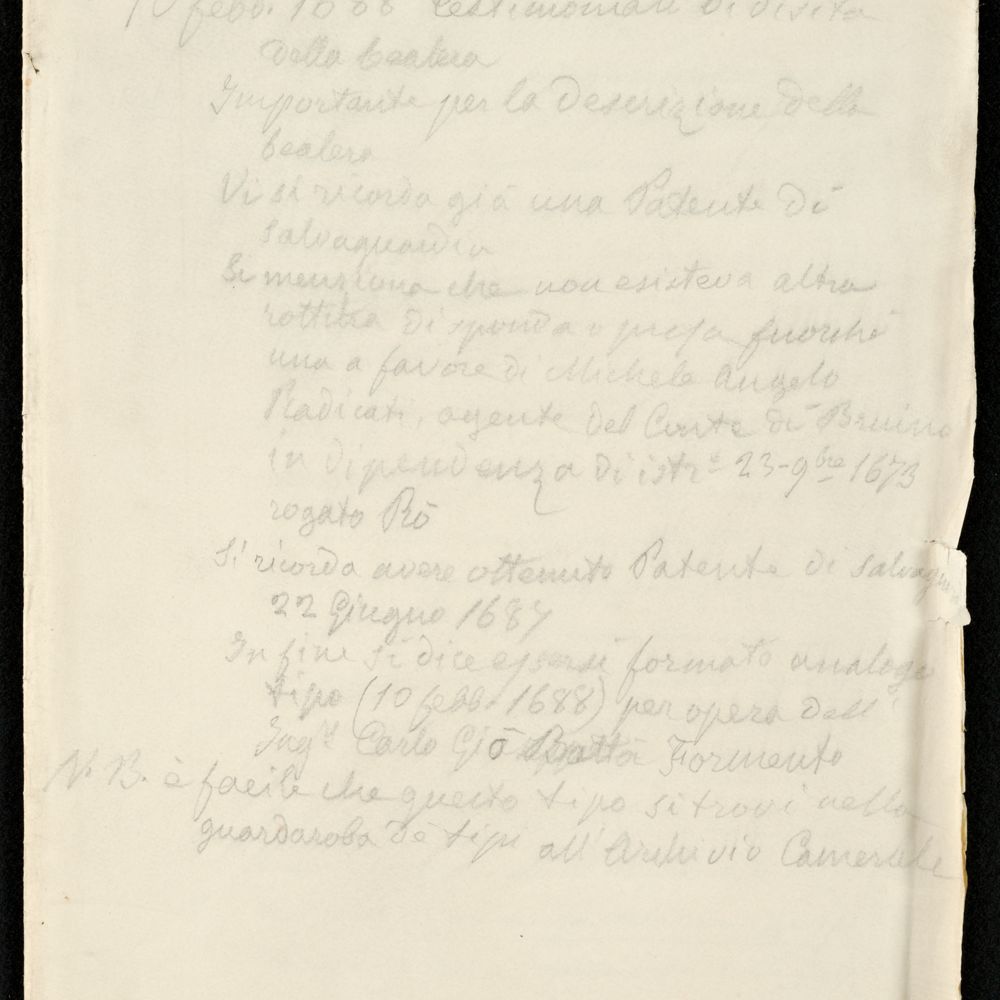 10 febb. 1688 Testimoniali di visita
della bealera
Importante per la descrizione della
bealera
Vi si ricorda già una Patente di
salvaguardia
Si menziona che non esisteva altra
rottura di sponda o presa fuorché
una a favore di Michele Angelo
Radicati, agente del Conte di Bruino
in dipendenza di istr.º 23-9bre 1673
rogato Rò
Si ricorda avere ottenuto Patente di salvagua
22 Giugno 1687
In fine si dice essersi formato analogo
tipo (10 febb. 1688) per opera dell'
Ingre Carlo Giō Batta Formento
N.B. è facile che questo tipo si trovi nella
guardaroba de tipi all'Archivio Camerale